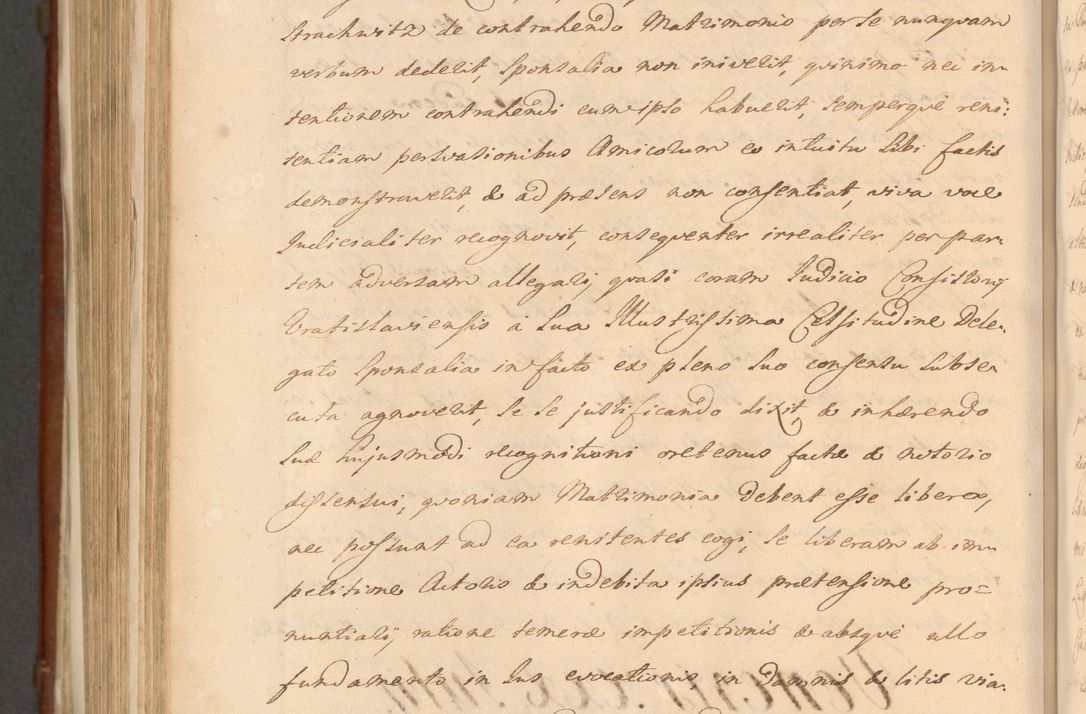 Strachwitz de contrahendo Matrimonio per se nunquam
verbum dederit, Sponsalia non iniverit, quinimo nec in⸗
tentionem contrahendi cum ipso habuerit, Semperquè reni⸗
tentiam persvasionibus Amicorum eo intuitu Sibi factis
demonstraverit, & ad præsens non consentiat, viva voce
Judicialiter recognovit, consequenter irrealiter per par⸗
tem adversam allegari, quasi coram Judicio Consistorij
Vratislaviensis a Sua Illustrissima Celsitudine Dele⸗
gato Sponsalia in facto ex pleno Suo consensu Subse⸗
cuta agnoverit, Se Se justificando dixit, & inhærendo
Suæ hujusmodi recognitioni oretenus factæ & notorio
dissensui, quoniam Matrimonia debent esse libera,
nec possunt ad ea renitentes cogi, Se liberam ab im⸗
petitione Actoris & indebita ipsius prætensione pro⸗
nuntiari, ratione temeræ impetitionis & absquè ullo
fundamento in Jus evocationis, in damnis & litis via⸗